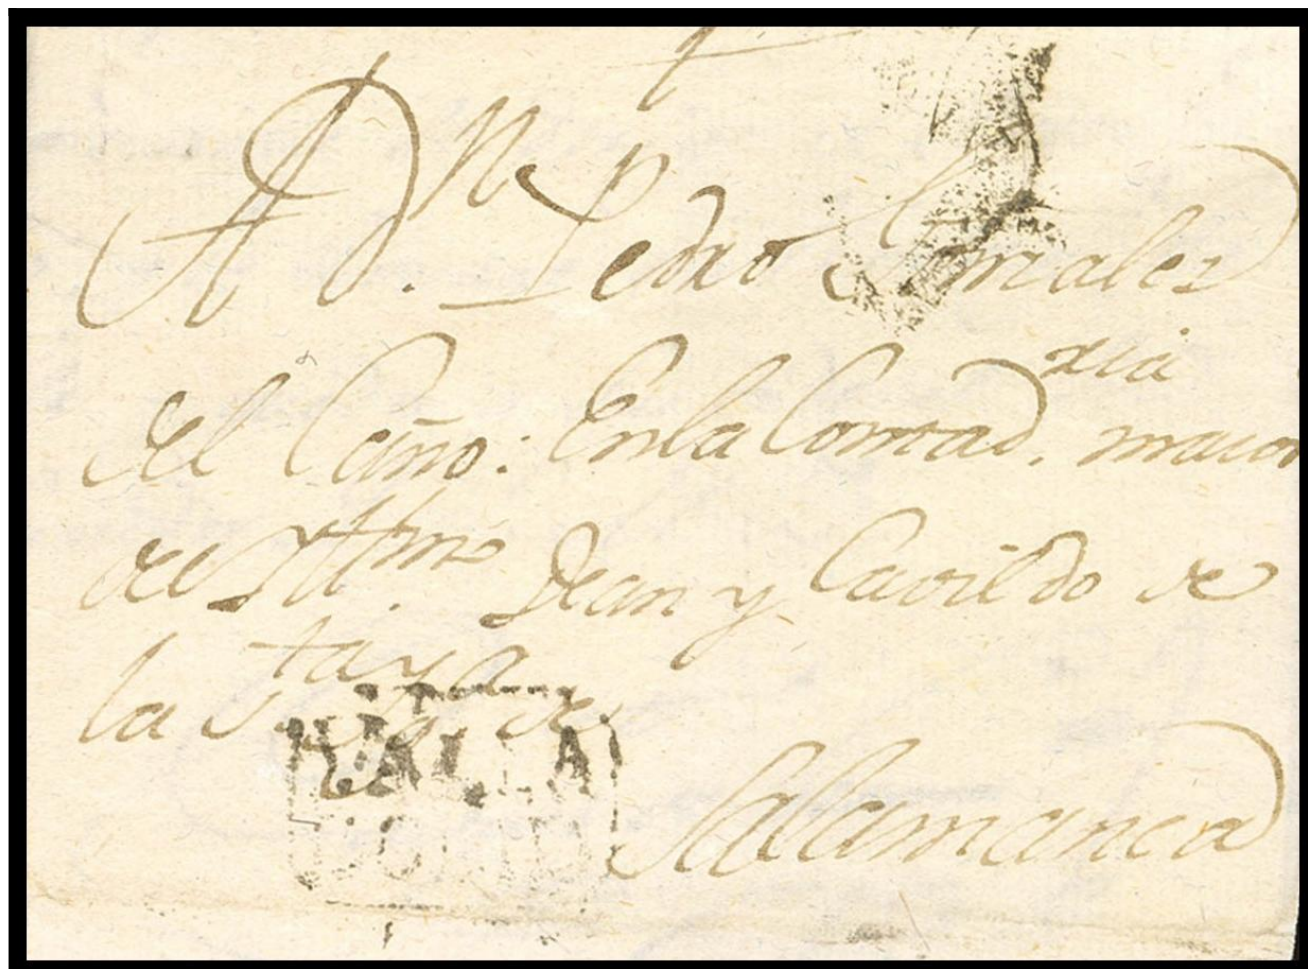 A D.n Pedro Gonzalez
del Caño: En la Contad.ria maior
del Ill.mo Dean y Cavildo de
la S.ta Ygª de
VALLA
DOLID
Salamanca